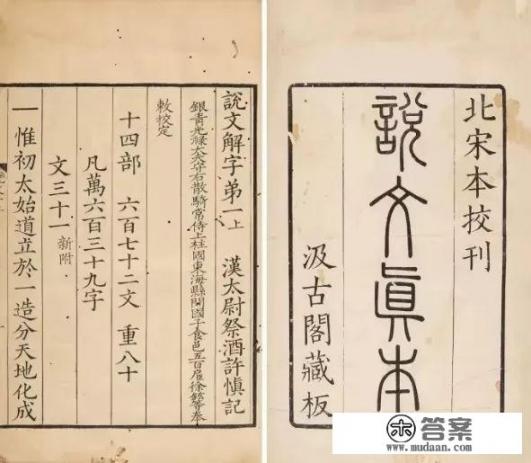 北宋本挍刊
說文眞本
汲古閣藏板
說文解字弟一上 漢太尉祭酒許愼記
銀青光祿大夫守右散騎常侍上柱國東海縣開國子食邑五百戶徐鉉等奉
敕挍定
十四部 六百七十二文 重八十
凡萬六百三十九字
文三十一新附
一惟初太始道立於一造分天地化成
答案
www.mudaan.com